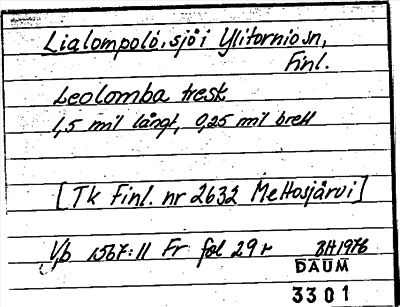 Lialompolo, sjö i Ylitornio sn,
Finl.
Leolomba tresk
1,5 mil långt, 0,25 mil brett
[Tk Finl. nr 2632 Meltosjärvi]
Vb 1567:11 Fr fol 29r BH 1976
DAUM
3301